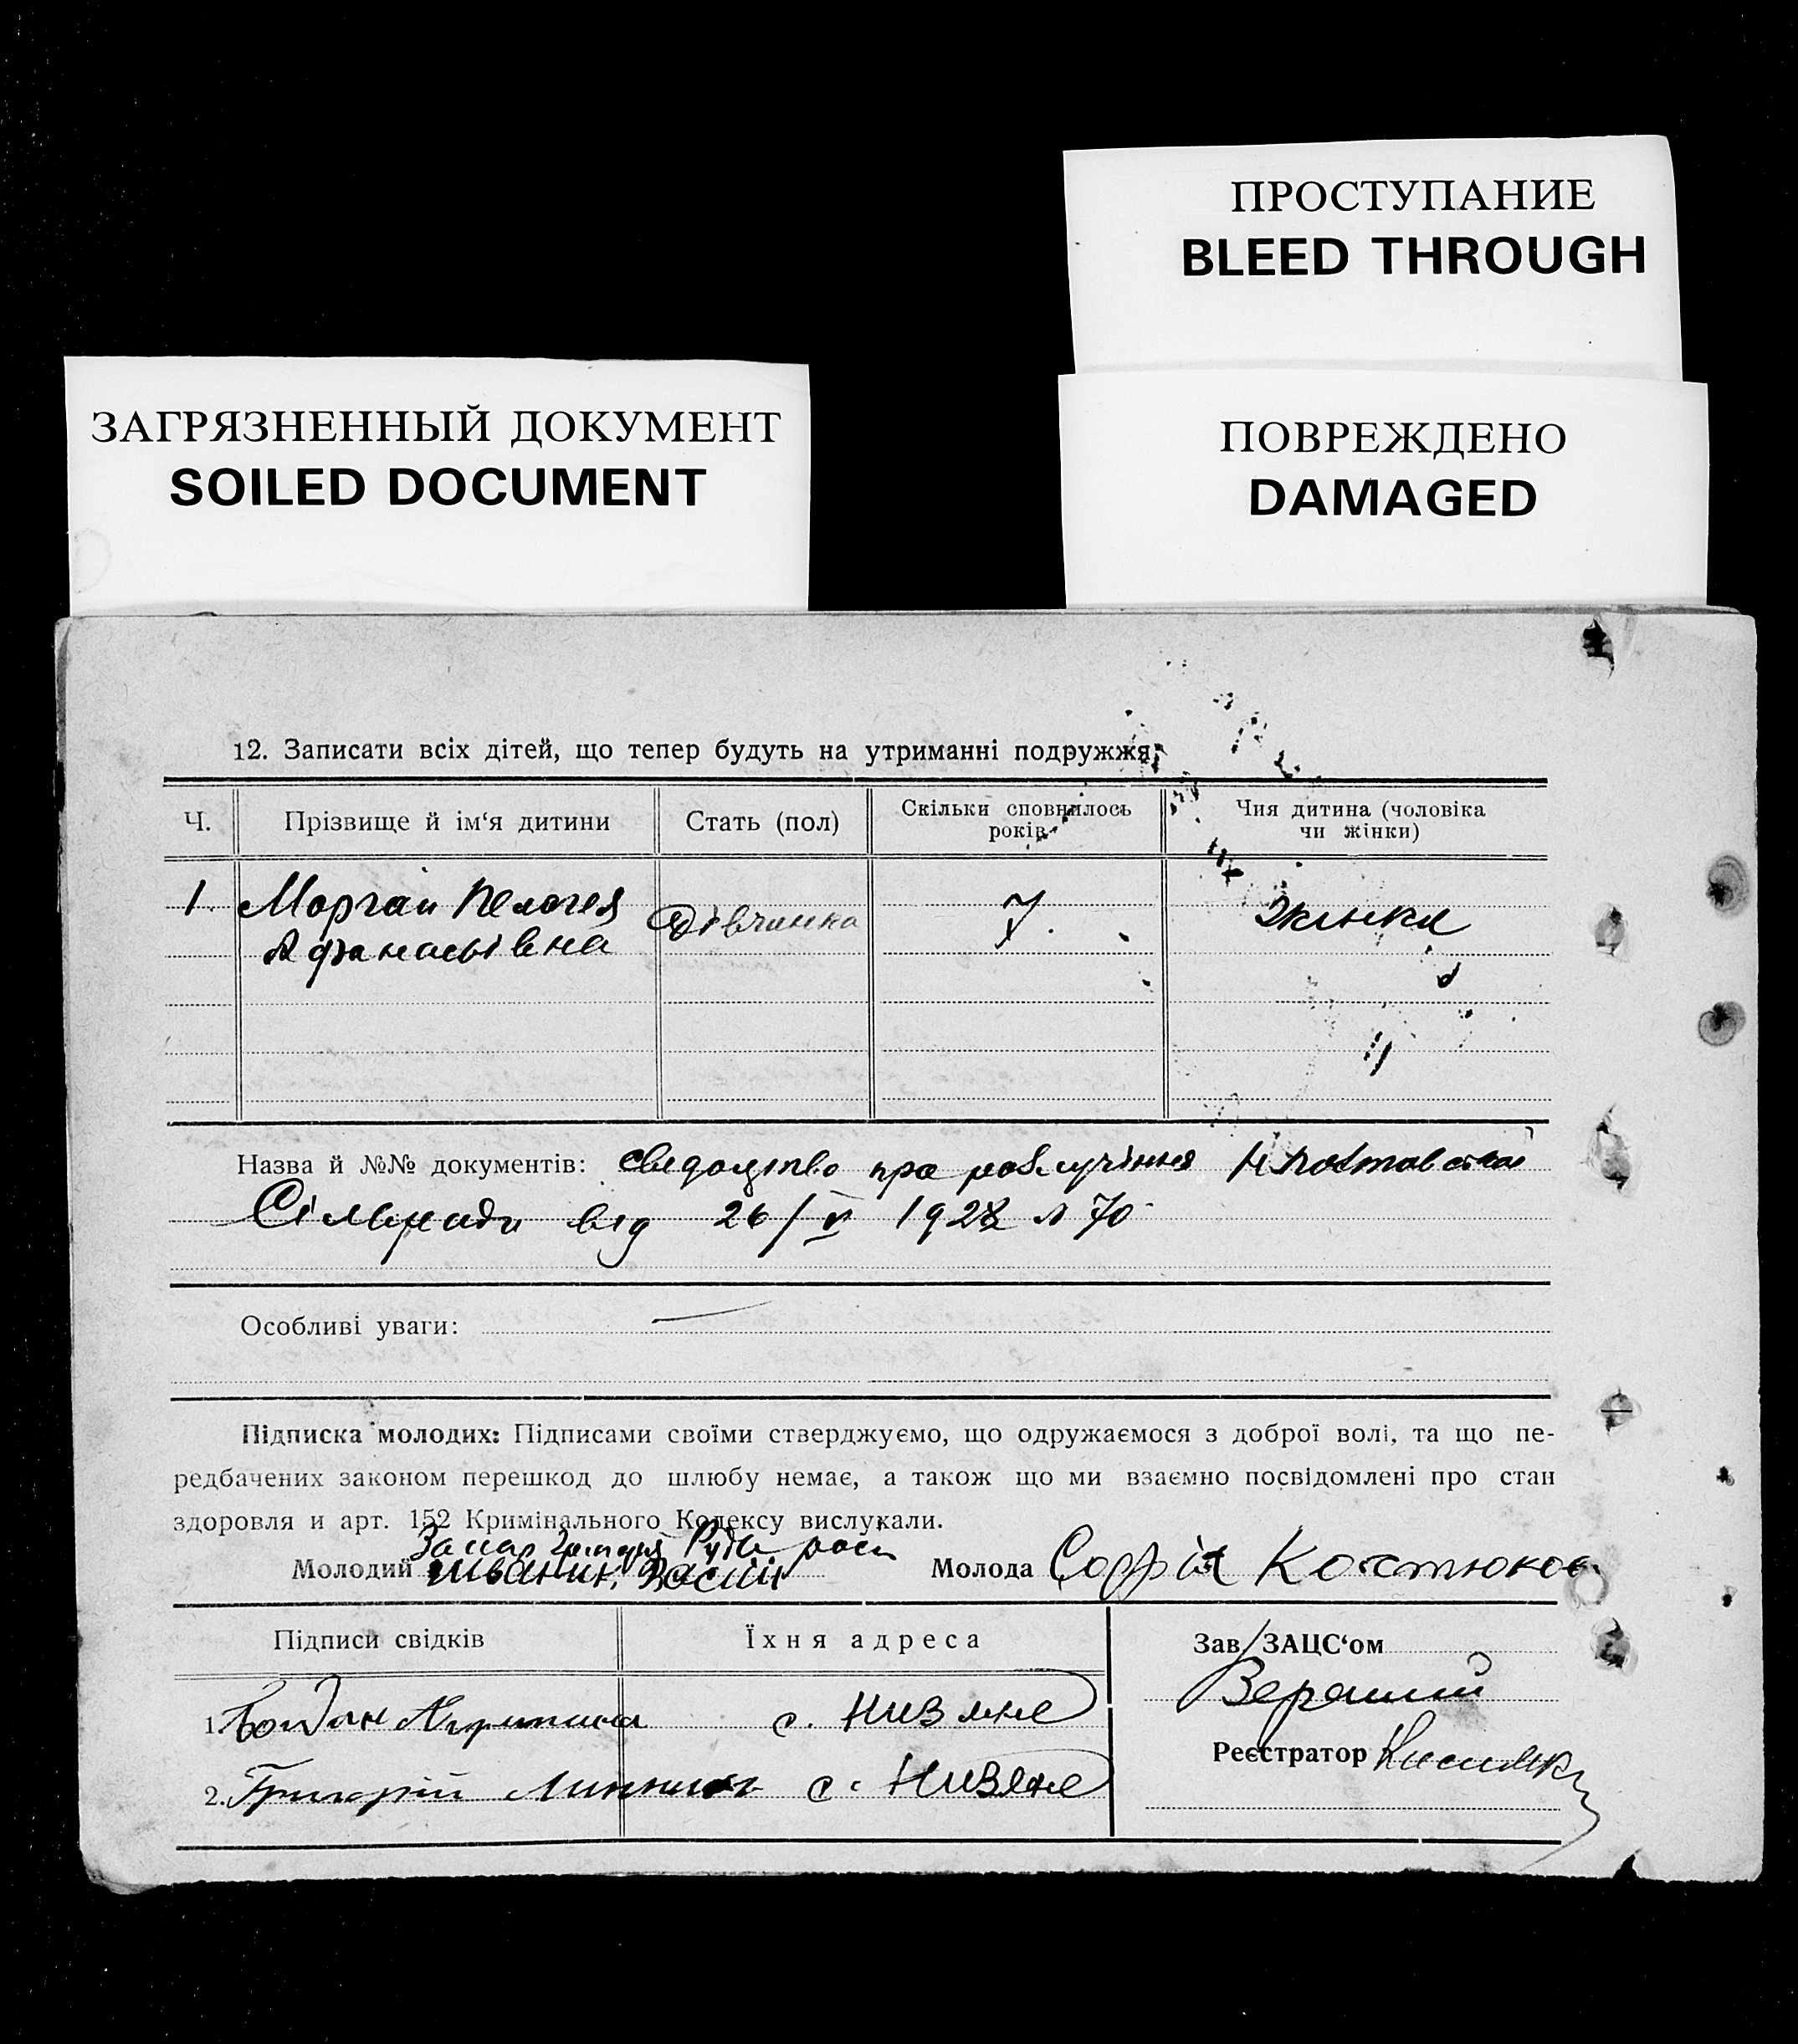 ПРОСТУПАНИЕ
BLEED THROUGH
ЗАГРЯЗНЕННЫЙ ДОКУМЕНТ
SOILED DOCUMENT
ПОВРЕЖДЕНО
DAMAGED
12. Записати всіх дітей, що тепер будуть на утриманні подружжя:
Ч. Прізвище й ім‘я дитини Стать (пол) Скільки сповнилось років Чия дитина (чоловіка чи жінки)
1. Моргай Пелогея Дівчинка 7. Жинки
Афанасьівна
Назва й №№ документів: про
Сільради від 26/V 1928 № 70
Особливі уваги: —
Підписка молодих: Підписами своїми стверджуємо, що одружаємося з доброї волі, та що пе-
редбачених законом перешкод до шлюбу немає, а також що ми взаємно посвідомлені про стан
здоровля и арт. 152 Кримінального Кодексу вислухали.
Молодий Молода Софія Костюкова
Підписи свідків Їхня адреса Зав. ЗАЦС‘ом
1. с. Нивяне
Реєстратор
2. Григорій с. Нивяне